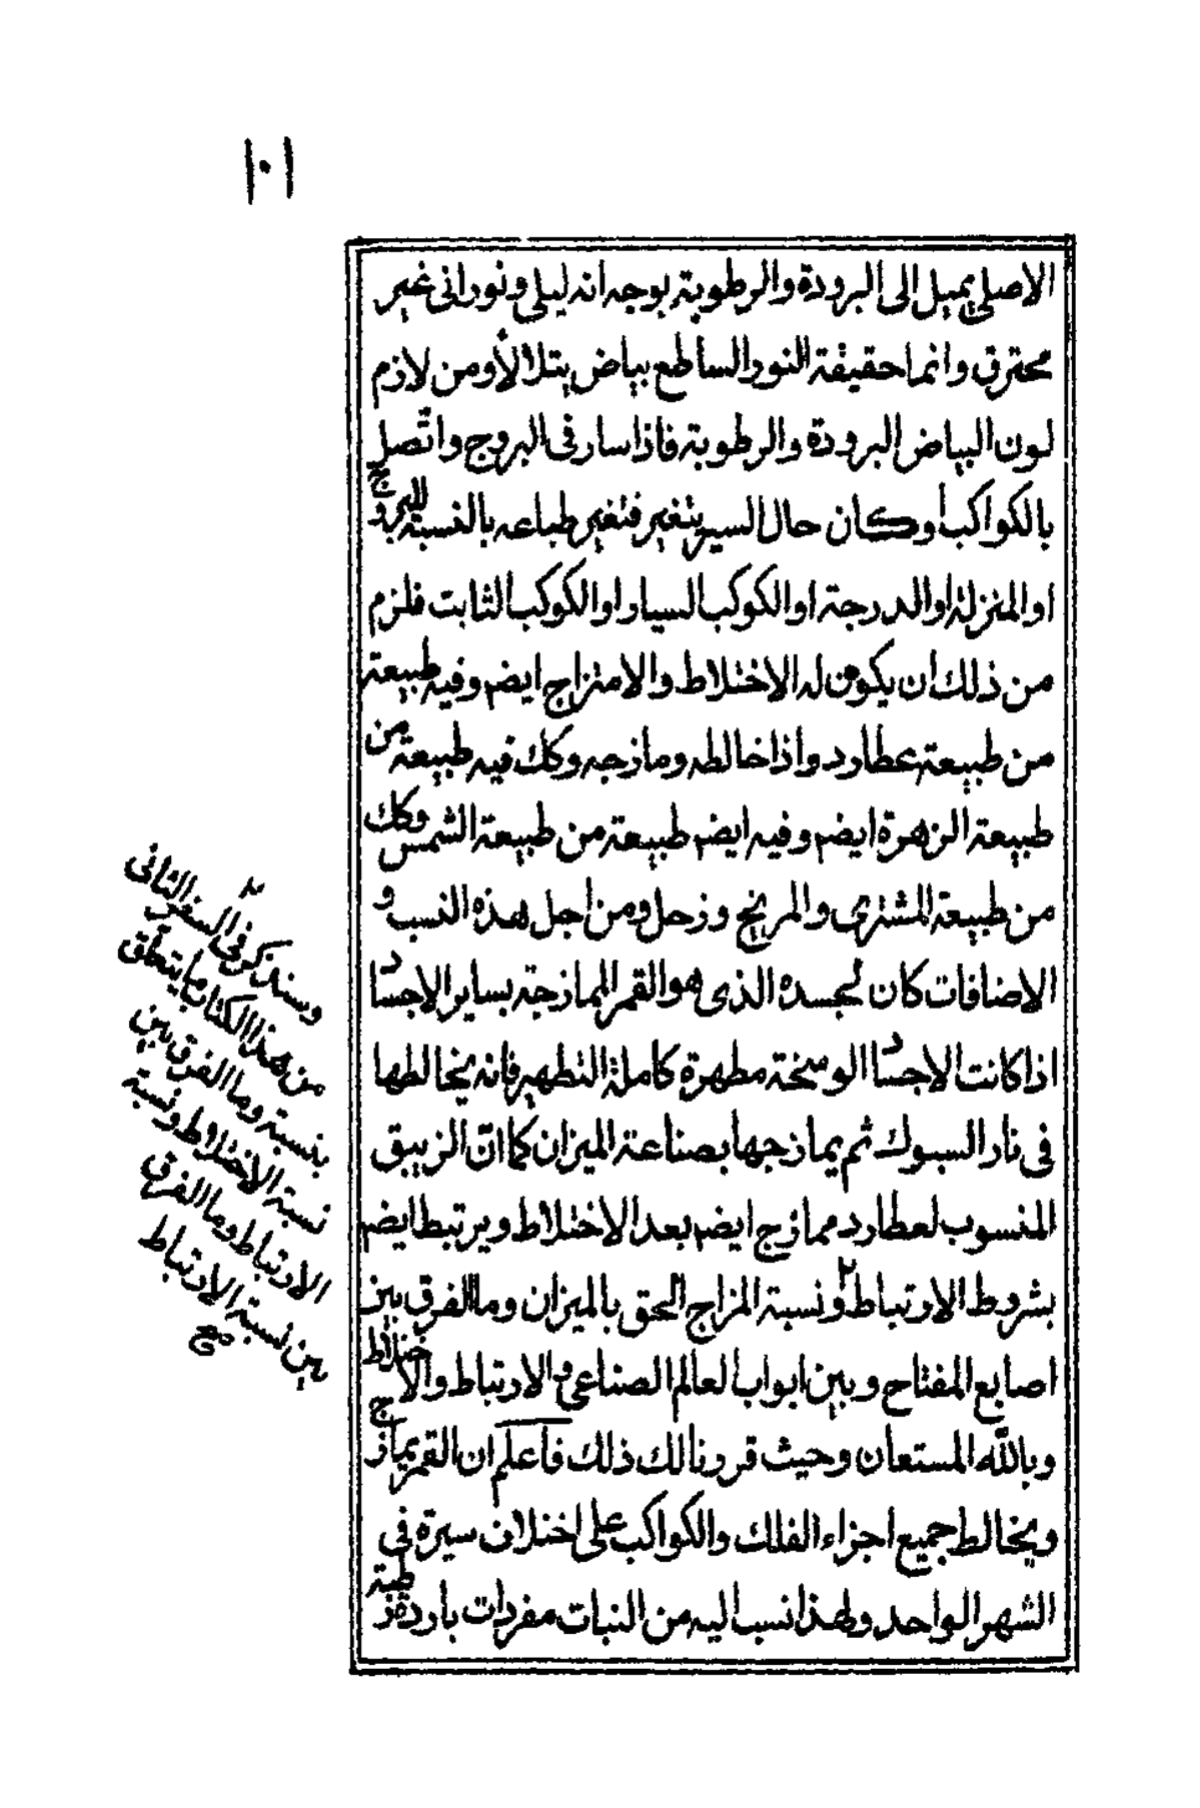 ١٠١
الاصلي يميل الى البرودة والرطوبة بوجه انه ليلى ونورانى غير
محترق وانما حقيقة النور الساطع بياض يتلالأ ومن لازم
لون البياض البرودة والرطوبة فاذا سار فى البروج واتّصل
بالكواكب وكان حال السير يتغير فتغير طباعه بالنسبة للبروج
او المنزلة او الدرجة او الكوكب السيار او الكوكب الثابت فلزم
من ذلك ان يكون له الاختلاط والامتزاج ايضم وفيه طبيعة
من طبيعة عطارد واذا خالطه ومازجه وكك فيه طبيعة من
طبيعة الزهرة ايضم وفيه ايضم طبيعة من طبيعة الشمس وكك
من طبيعة المشترى والمريخ وزحل ومن اجل هذه النسب و
الاضافات كان لجسده الذى هو القمر الممازجة بساير الاجساد
اذا كانت الاجساد الوسخة مطهرة كاملة التطهير فانه يخالطها
فى نار السبوك ثم يمازجها بصناعة الميزان كما انّ الزيبق
المنسوب لعطارد ممازج ايضم بعد الاختلاط ويرتبط ايضم
بشروط الارتباط ٢ ونسبة المزاج الحق بالميزان وما الفرق بين
اصابع المفتاح وبين ابواب العالم الصناعى والارتباط والاختلاط
وبالله المستعان وحيث قررنا لك ذلك فاعلم ان القمر يمازج
ويخالط جميع اجزاء الفلك والكواكب على اختلاف سيره فى
الشهر الواحد ولهذا نسب اليه من النبات مفردات باردة رطبة
٢
وسنذكر فى السفر الثانى
من هذا الكتاب ما يتعلق
بنسبة وما الفرق بين
نسبة الاختلاط ونسبة
الارتباط وما الفرق
بين نسبة الارتباط
صح